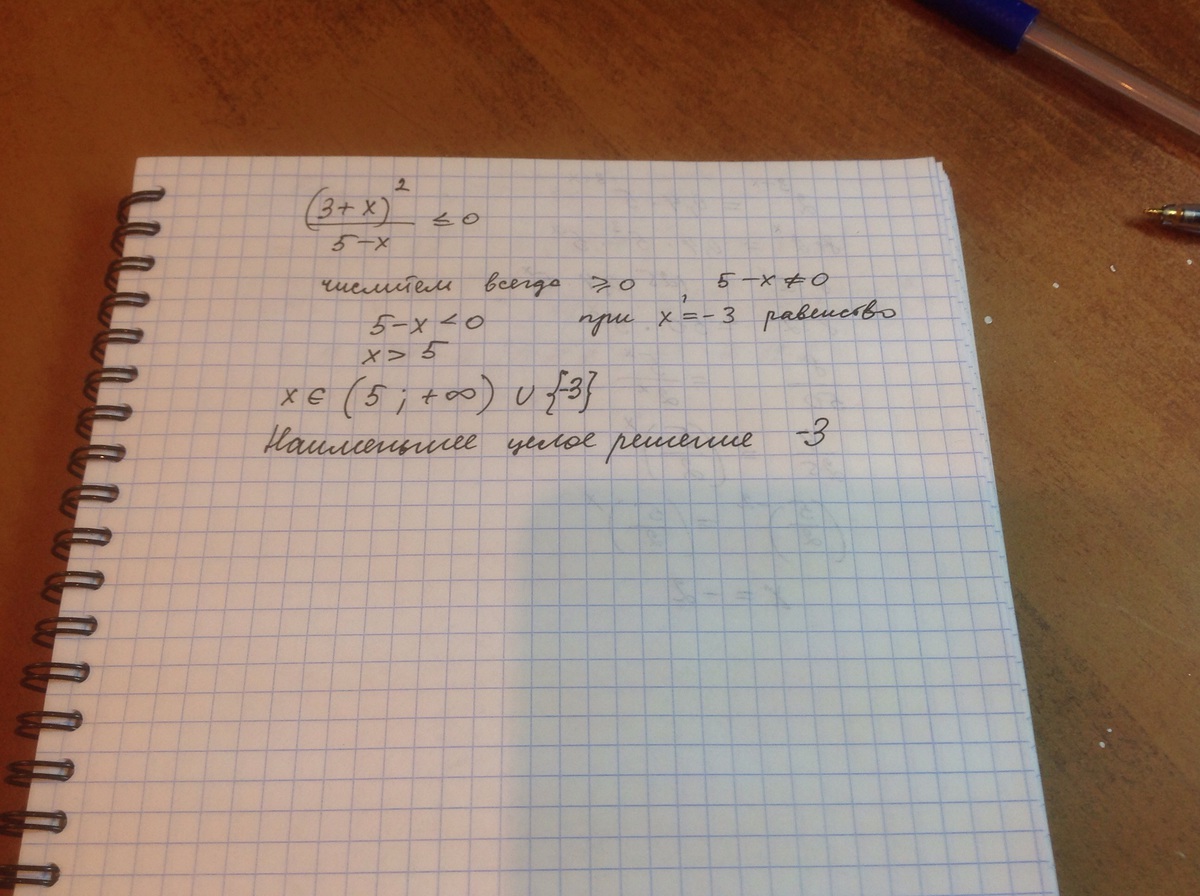 (3+x)²
5-x ≤ 0
числитель всегда ≥0, 5-x≠0
5-x<0 при x=-3 равенство
x > 5
x ∈ (5; +∞) ∪ {-3}
Наименьшее целое решение -3
x = -2